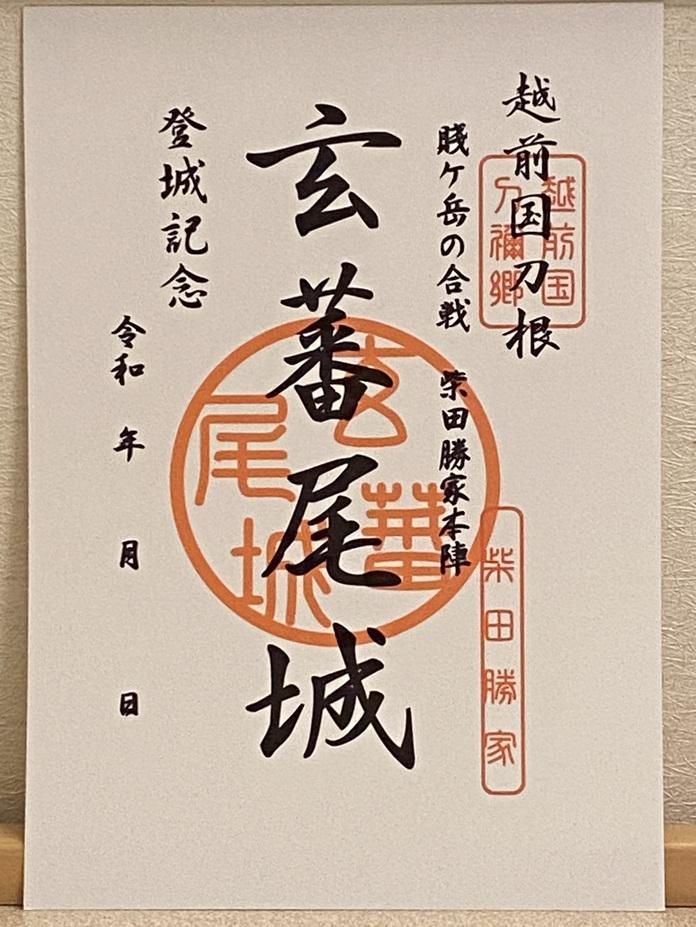 越前国刀根
越前国
刀禰郷
賤ケ岳の合戦 柴田勝家本陣
柴田勝家
玄蕃尾城
玄蕃尾城
登城記念
令和 年 月 日